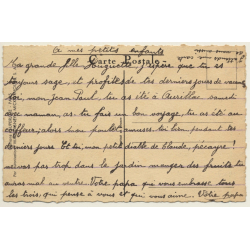 A mes petits enfants
Carte Postale
Ma grande fille Huguette j'espère que tu es
toujours sage, et profites de les derniers jours de vacances
toi mon Jean Paul, tu as été à Aurillac avec
maman, as tu fait un bon voyage, tu as été au
coiffeur, alors mon poulet amuses toi bien pendant les
derniers jours. Et toi, mon petit diable de Claude, pécayre!
vas pas trop dans le jardin manger des fruits tu
auras mal au ventre. Votre papa que vous embrasse tous
les trois, qui pense à vous et qui vous aime. Votre papa